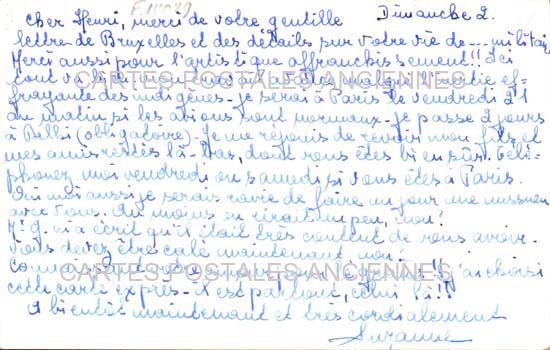 Dimanche 2.
Cher Henri, merci de votre gentille
lettre de Bruxelles et des détails sur votre vie de --- militaire
Merci aussi pour l'artistique affranchissement!! Ici
tout va bien malgré l'inertie ef-
CARTES POSTALES ANCIENNES
frayante des indigènes - je serai à Paris le vendredi 21
au matin si les avions sont normaux - je passe 2 jours
à Delhi (obligatoire). Je me réjouis de revoir mon fils et
mes amis restés là-bas, dont vous êtes bien sûr. Télé-
phonez moi vendredi ou samedi si vous êtes à Paris.
Oui moi aussi je serais ravie de faire un jour une mission
avec vous. Au moins on rirait un peu, non!
m'a écrit qu'il était très content de vous avoir.
Vous devez être calé maintenant, non!
CARTES POSTALES ANCIENNES
j'ai choisi
cette carte exprès - il est partout, celui là!!
A bientôt maintenant et très cordialement
Suzanne